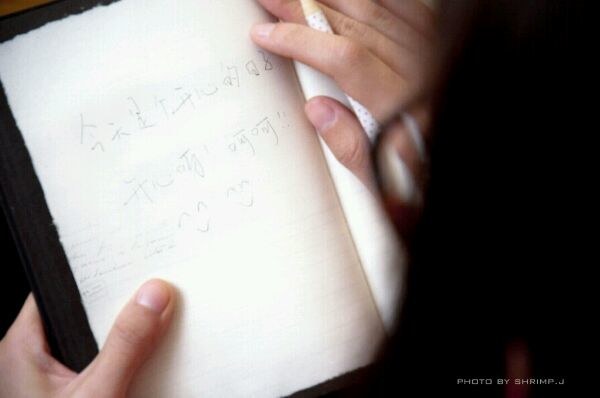 今天是个开心的日子
开心啊! 呵呵!!
PHOTO BY SHRIMP.J